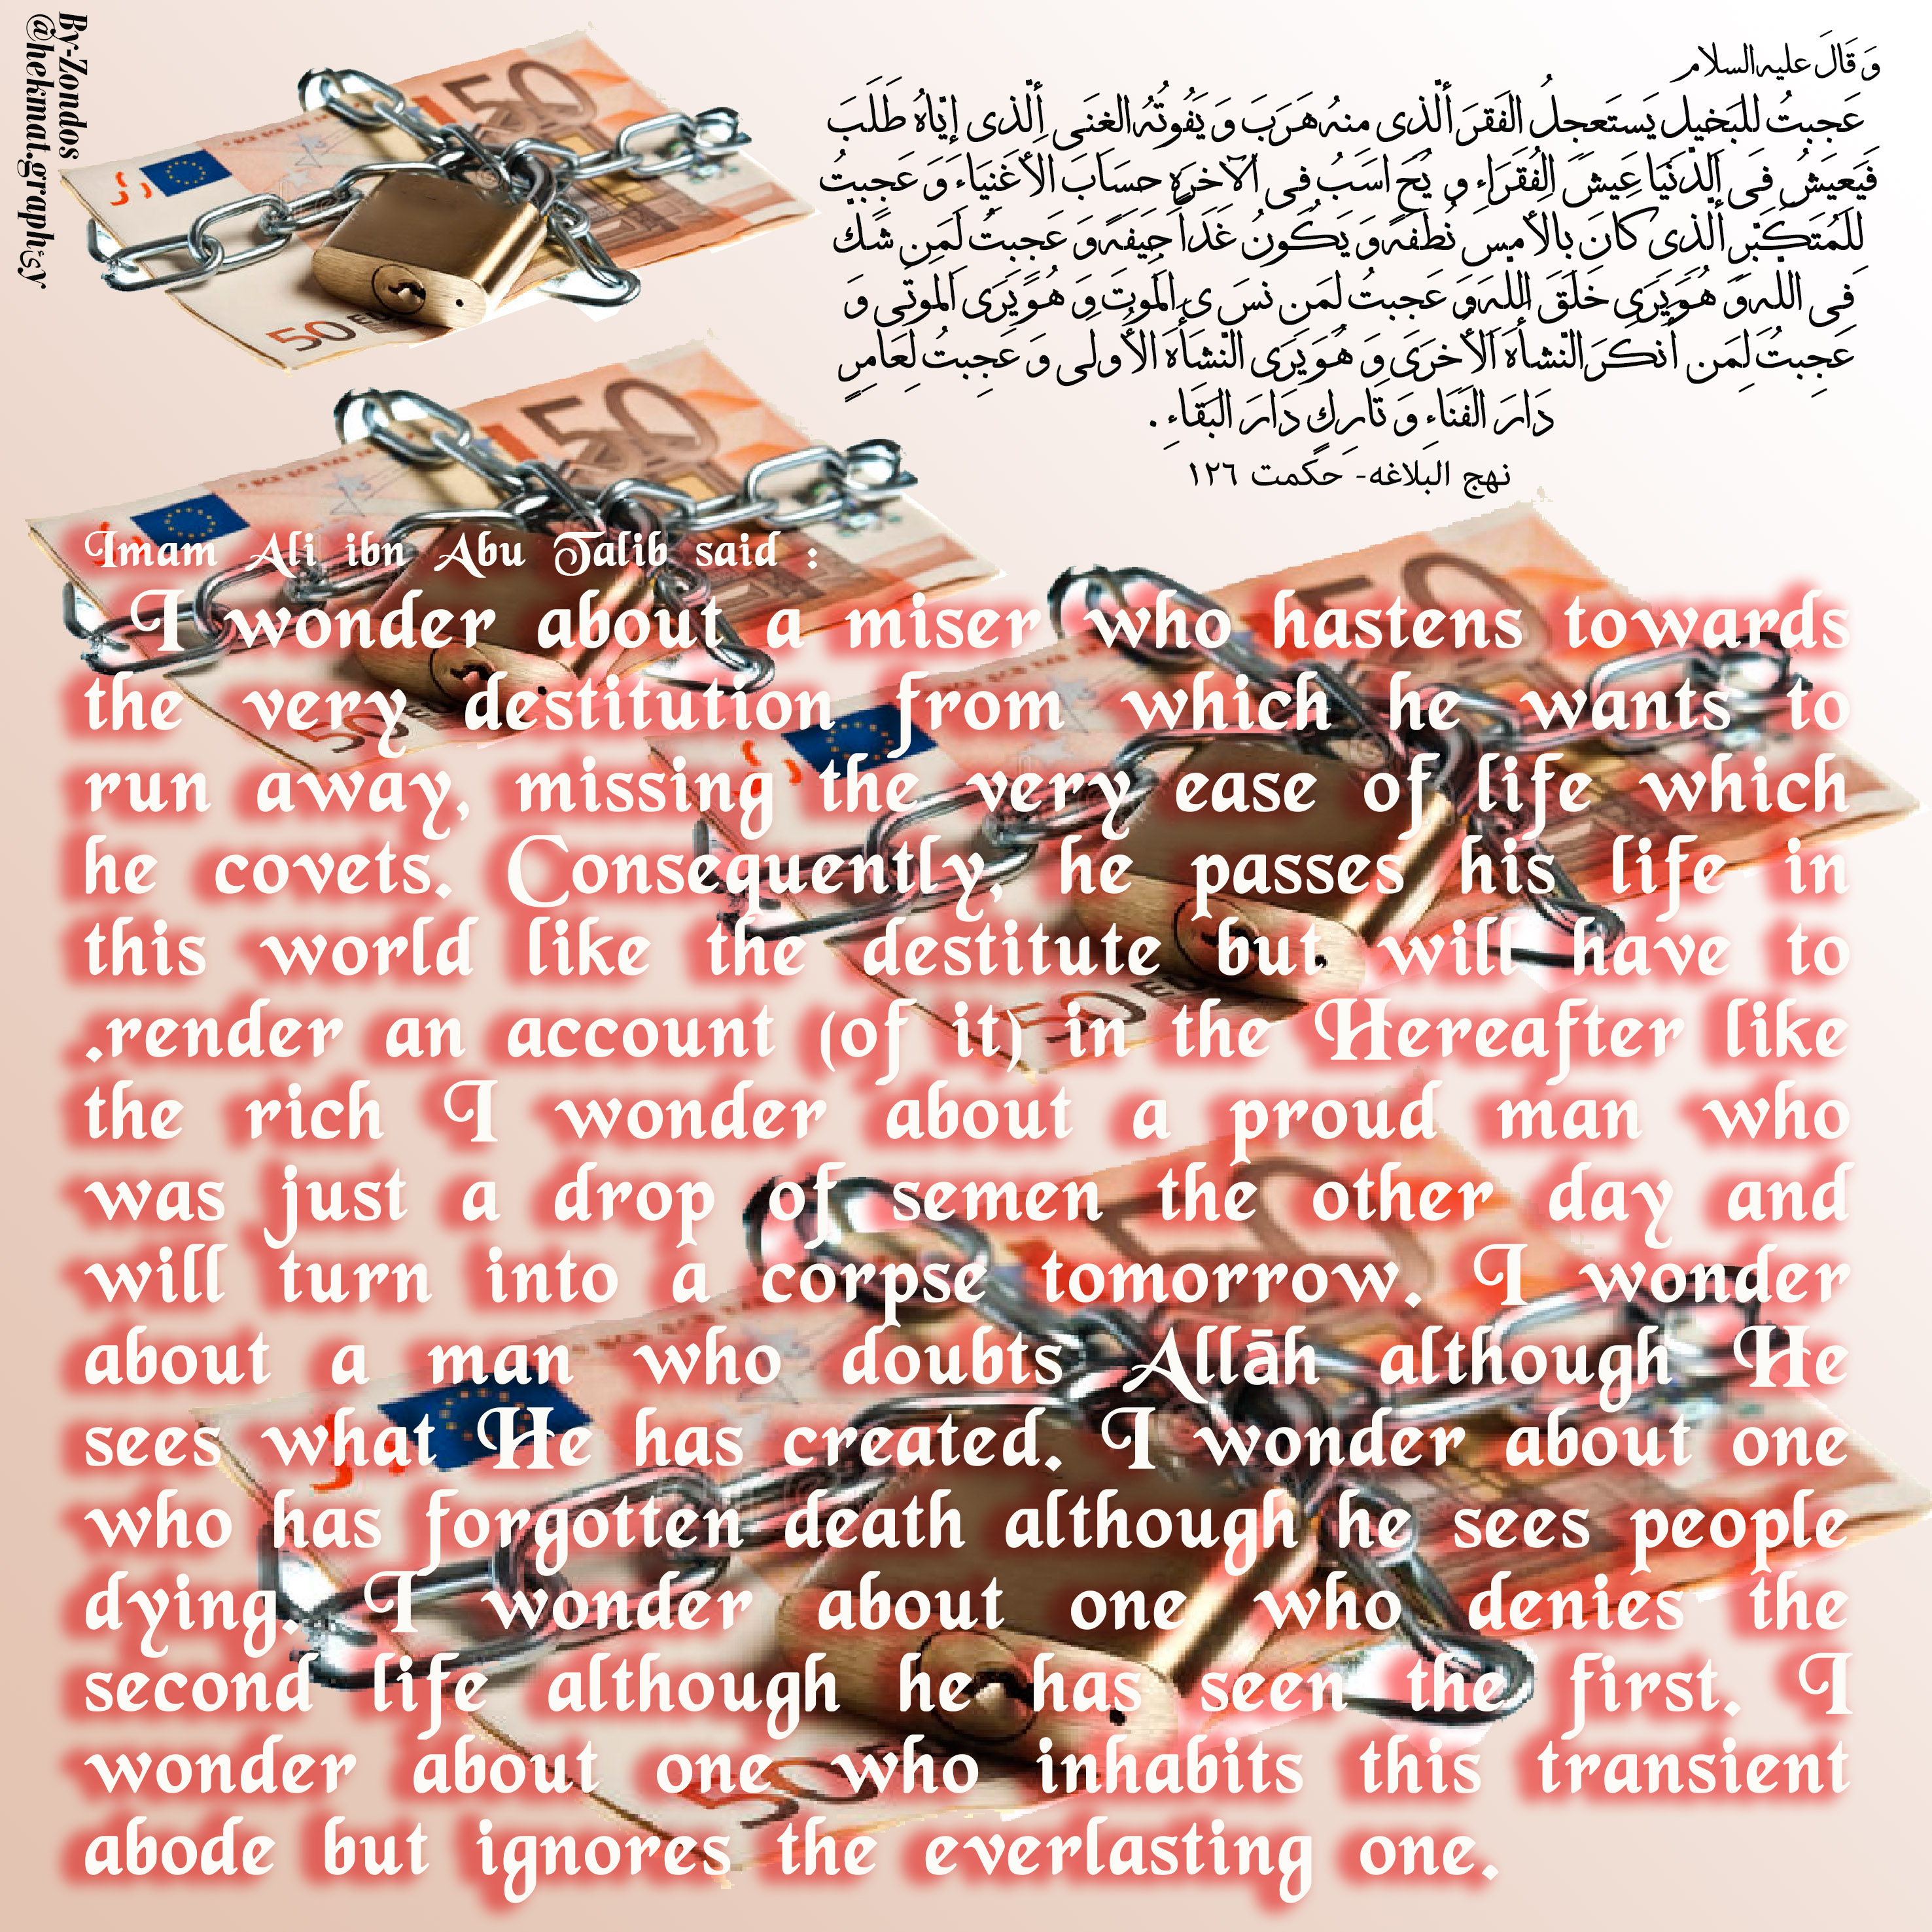 By-Zondos
@hekmat.graphży
وَ قَالَ علیہ السلام
عَجِبتُ لِلبَخِیلِ یَستَعجِلُ الفَقرَ ألّذِی مِنہُ هَرَبَ وَ یَفُوتُہُ الغِنَی اِلّذِی إیّاہُ طَلَبَ
فَیَعِیشُ فِی الدّنیَا عَیشَ الفُقَرَاءِ و یُحَاسَبُ فِی الآخِرَہِ حِسَابَ الأغنِیَاءِ وَ عَجِبتُ
لِلمُتَکَبّرِ ألّذِی کانَ بِالأمسِ نُطفَہً وَ یَکُونُ غَداً جِیفَہً وَ عَجِبتُ لِمَن شَکّ
فِی اللّہِ وَ هُوَ یَرَی خَلقَ اللّہِ وَ عَجِبتُ لِمَن نسَ ی المَوتَ وَ هُوَ یَرَی المَوتَی وَ
عَجِبتُ لِمَن أنکَرَ النّشأہَ الأُخرَی وَ هُوَ یَرَی النّشَأہَ الأُولَی وَ عَجِبتُ لِعَامِرٍ
دَارَ الفَنَاءِ وَ تَارِکٍ دَارَ البَقَاءِ .
نهج البلاغه- حکمت ١٢٦
Imam Ali ibn Abu Talib said :
I wonder about a miser who hastens towards
the very destitution from which he wants to
run away, missing the very ease of life which
he covets. Consequently, he passes his life in
this world like the destitute but will have to
.render an account (of it) in the Hereafter like
the rich I wonder about a proud man who
was just a drop of semen the other day and
will turn into a corpse tomorrow. I wonder
about a man who doubts Allāh although He
sees what He has created. I wonder about one
who has forgotten death although he sees people
dying. I wonder about one who denies the
second life although he has seen the first. I
wonder about one who inhabits this transient
abode but ignores the everlasting one.